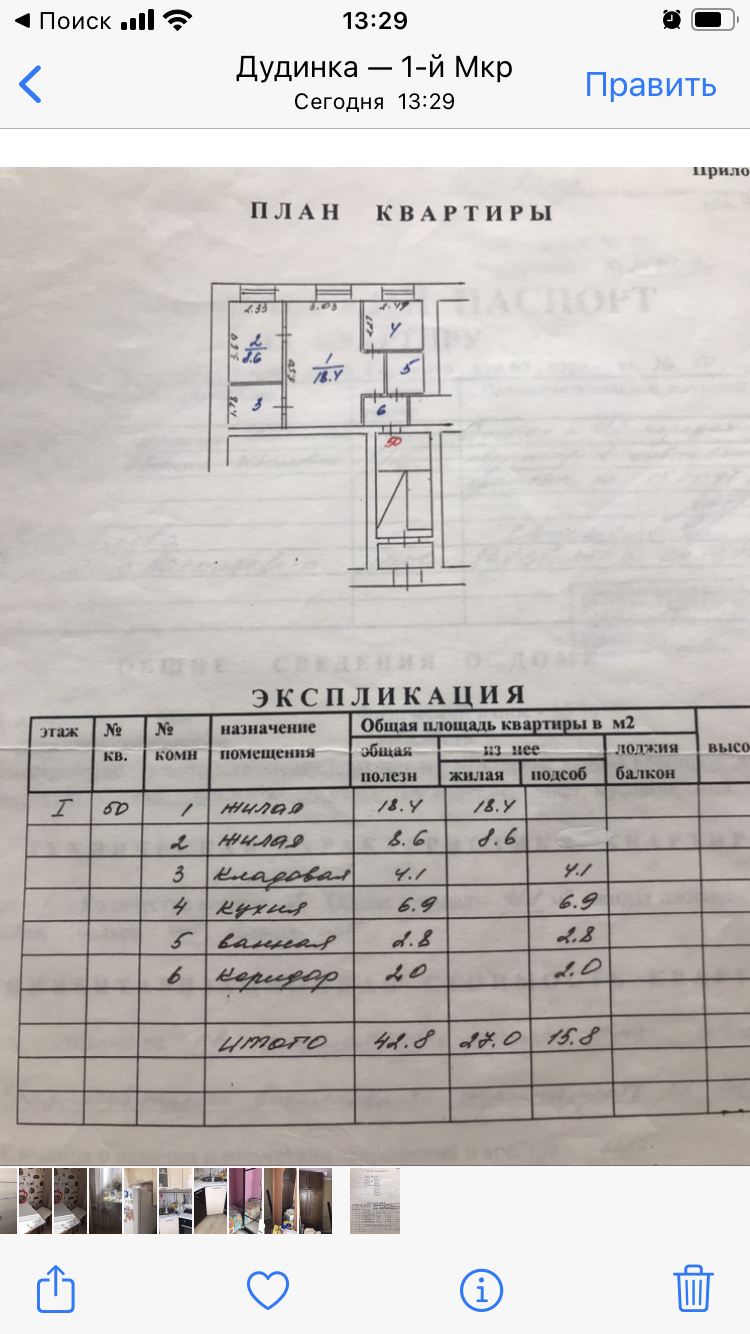 Поиск 13:29
Дудинка — 1-й Мкр
Сегодня 13:29
Править
Прило
ПЛАН КВАРТИРЫ
ПАСПОРТ
2.33 3.03 2.49
2 8.6
3.69
1 18.4
5.50
4
5
1.78
3
6
50
ОБЩИЕ СВЕДЕНИЯ О ДОМЕ
ЭКСПЛИКАЦИЯ
этаж № кв. № комн назначение помещения Общая площадь квартиры в м2 высо
общая полезн из нее лоджия балкон
жилая подсоб
I 50 1 жилая 18.4 18.4
2 жилая 8.6 8.6
3 кладовая 4.1 4.1
4 кухня 6.9 6.9
5 ванная 2.8 2.8
6 коридор 2.0 2.0
итого 42.8 27.0 15.8